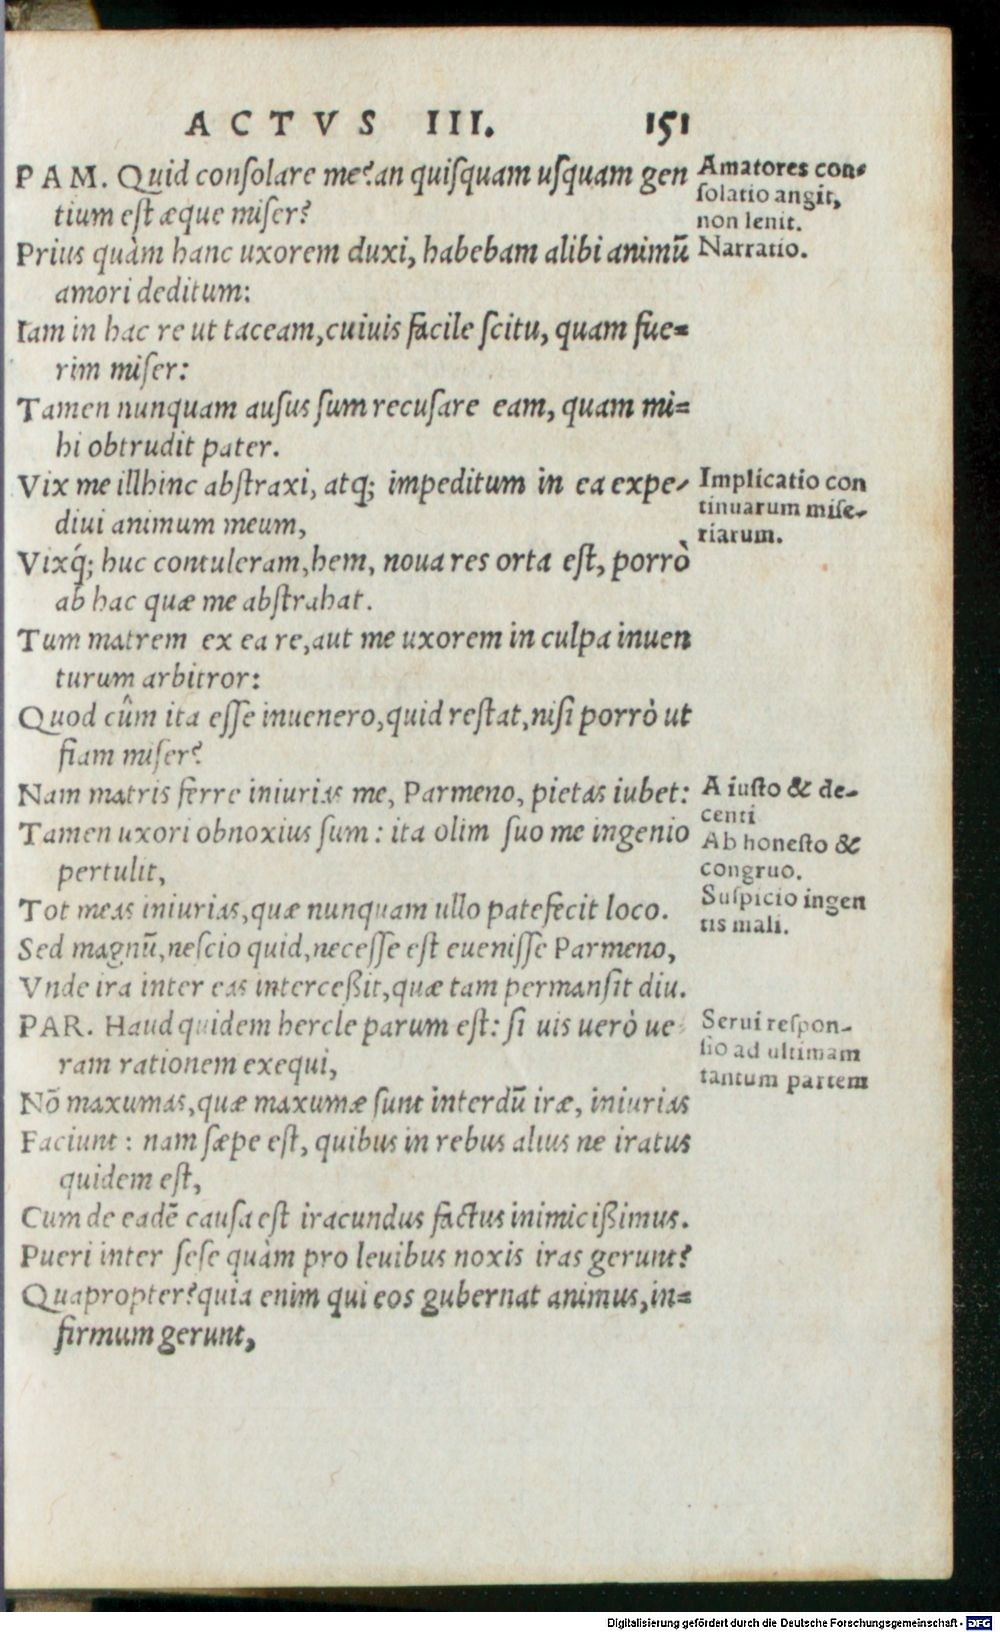 ACTVS III. 151
PAM. Quid conſolare me? an quiſquam uſquam gen
tium eſt æque miſer?
Prius quàm hanc uxorem duxi, habebam alibi animū
amori deditum:
Iam in hac re ut taceam, cuiuis facile ſcitu, quam fue=
rim miſer:
Tamen nunquam auſus ſum recuſare eam, quam mi=
hi obtrudit pater.
Vix me illhinc abſtraxi, atq; impeditum in ea expe-
diui animum meum,
Vixq́; huc contuleram, hem, noua res orta eſt, porrò
ab hac quæ me abſtrahat.
Tum matrem ex ea re, aut me uxorem in culpa inuen
turum arbitror:
Quod cûm ita eſſe inuenero, quid reſtat, niſi porrò ut
fiam miſer?
Nam matris ferre iniurias me, Parmeno, pietas iubet:
Tamen uxori obnoxius ſum: ita olim ſuo me ingenio
pertulit,
Tot meas iniurias, quæ nunquam ullo patefecit loco.
Sed magnū, neſcio quid, neceſſe eſt eueniſſe Parmeno,
Vnde ira inter eas interceßit, quæ tam permanſit diu.
PAR. Haud quidem hercle parum eſt: ſi uis uerò ue
ram rationem exequi,
Nō maxumas, quæ maxumæ ſunt interdū iræ, iniurias
Faciunt: nam ſæpe eſt, quibus in rebus alius ne iratus
quidem eſt,
Cum de eadē cauſa eſt iracundus factus inimicißimus.
Pueri inter ſeſe quàm pro leuibus noxis iras gerunt?
Quapropter? quia enim qui eos gubernat animus, in=
firmum gerunt,
Amatores con-
ſolatio angit,
non lenit.
Narratio.
Implicatio con
tinuarum miſe-
riarum.
A iuſto & de-
centi
Ab honeſto &
congruo.
Suſpicio ingen
tis mali.
Serui reſpon-
ſio ad ultimam
tantum partem
Digitalisierung gefördert durch die Deutsche Forschungsgemeinschaft - DFG